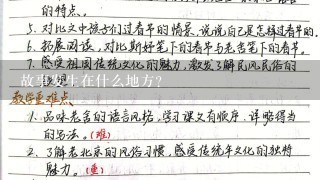 的特点。
5. 对比文中孩子们过春节的情景,说说自己是怎样过春节的。
6. 拓展阅读,对比斯妤笔下的春节与老舍笔下的春节。
7. 感受祖国传统文化的魅力,激发了解民风民俗的
故事发生在什么地方?
教学重难点
1. 品味老舍的语言风格,学习课文有顺序、详略得当
的写法。(难)
2. 了解老北京的风俗习惯,感受传统年文化的独特
魅力。(重)